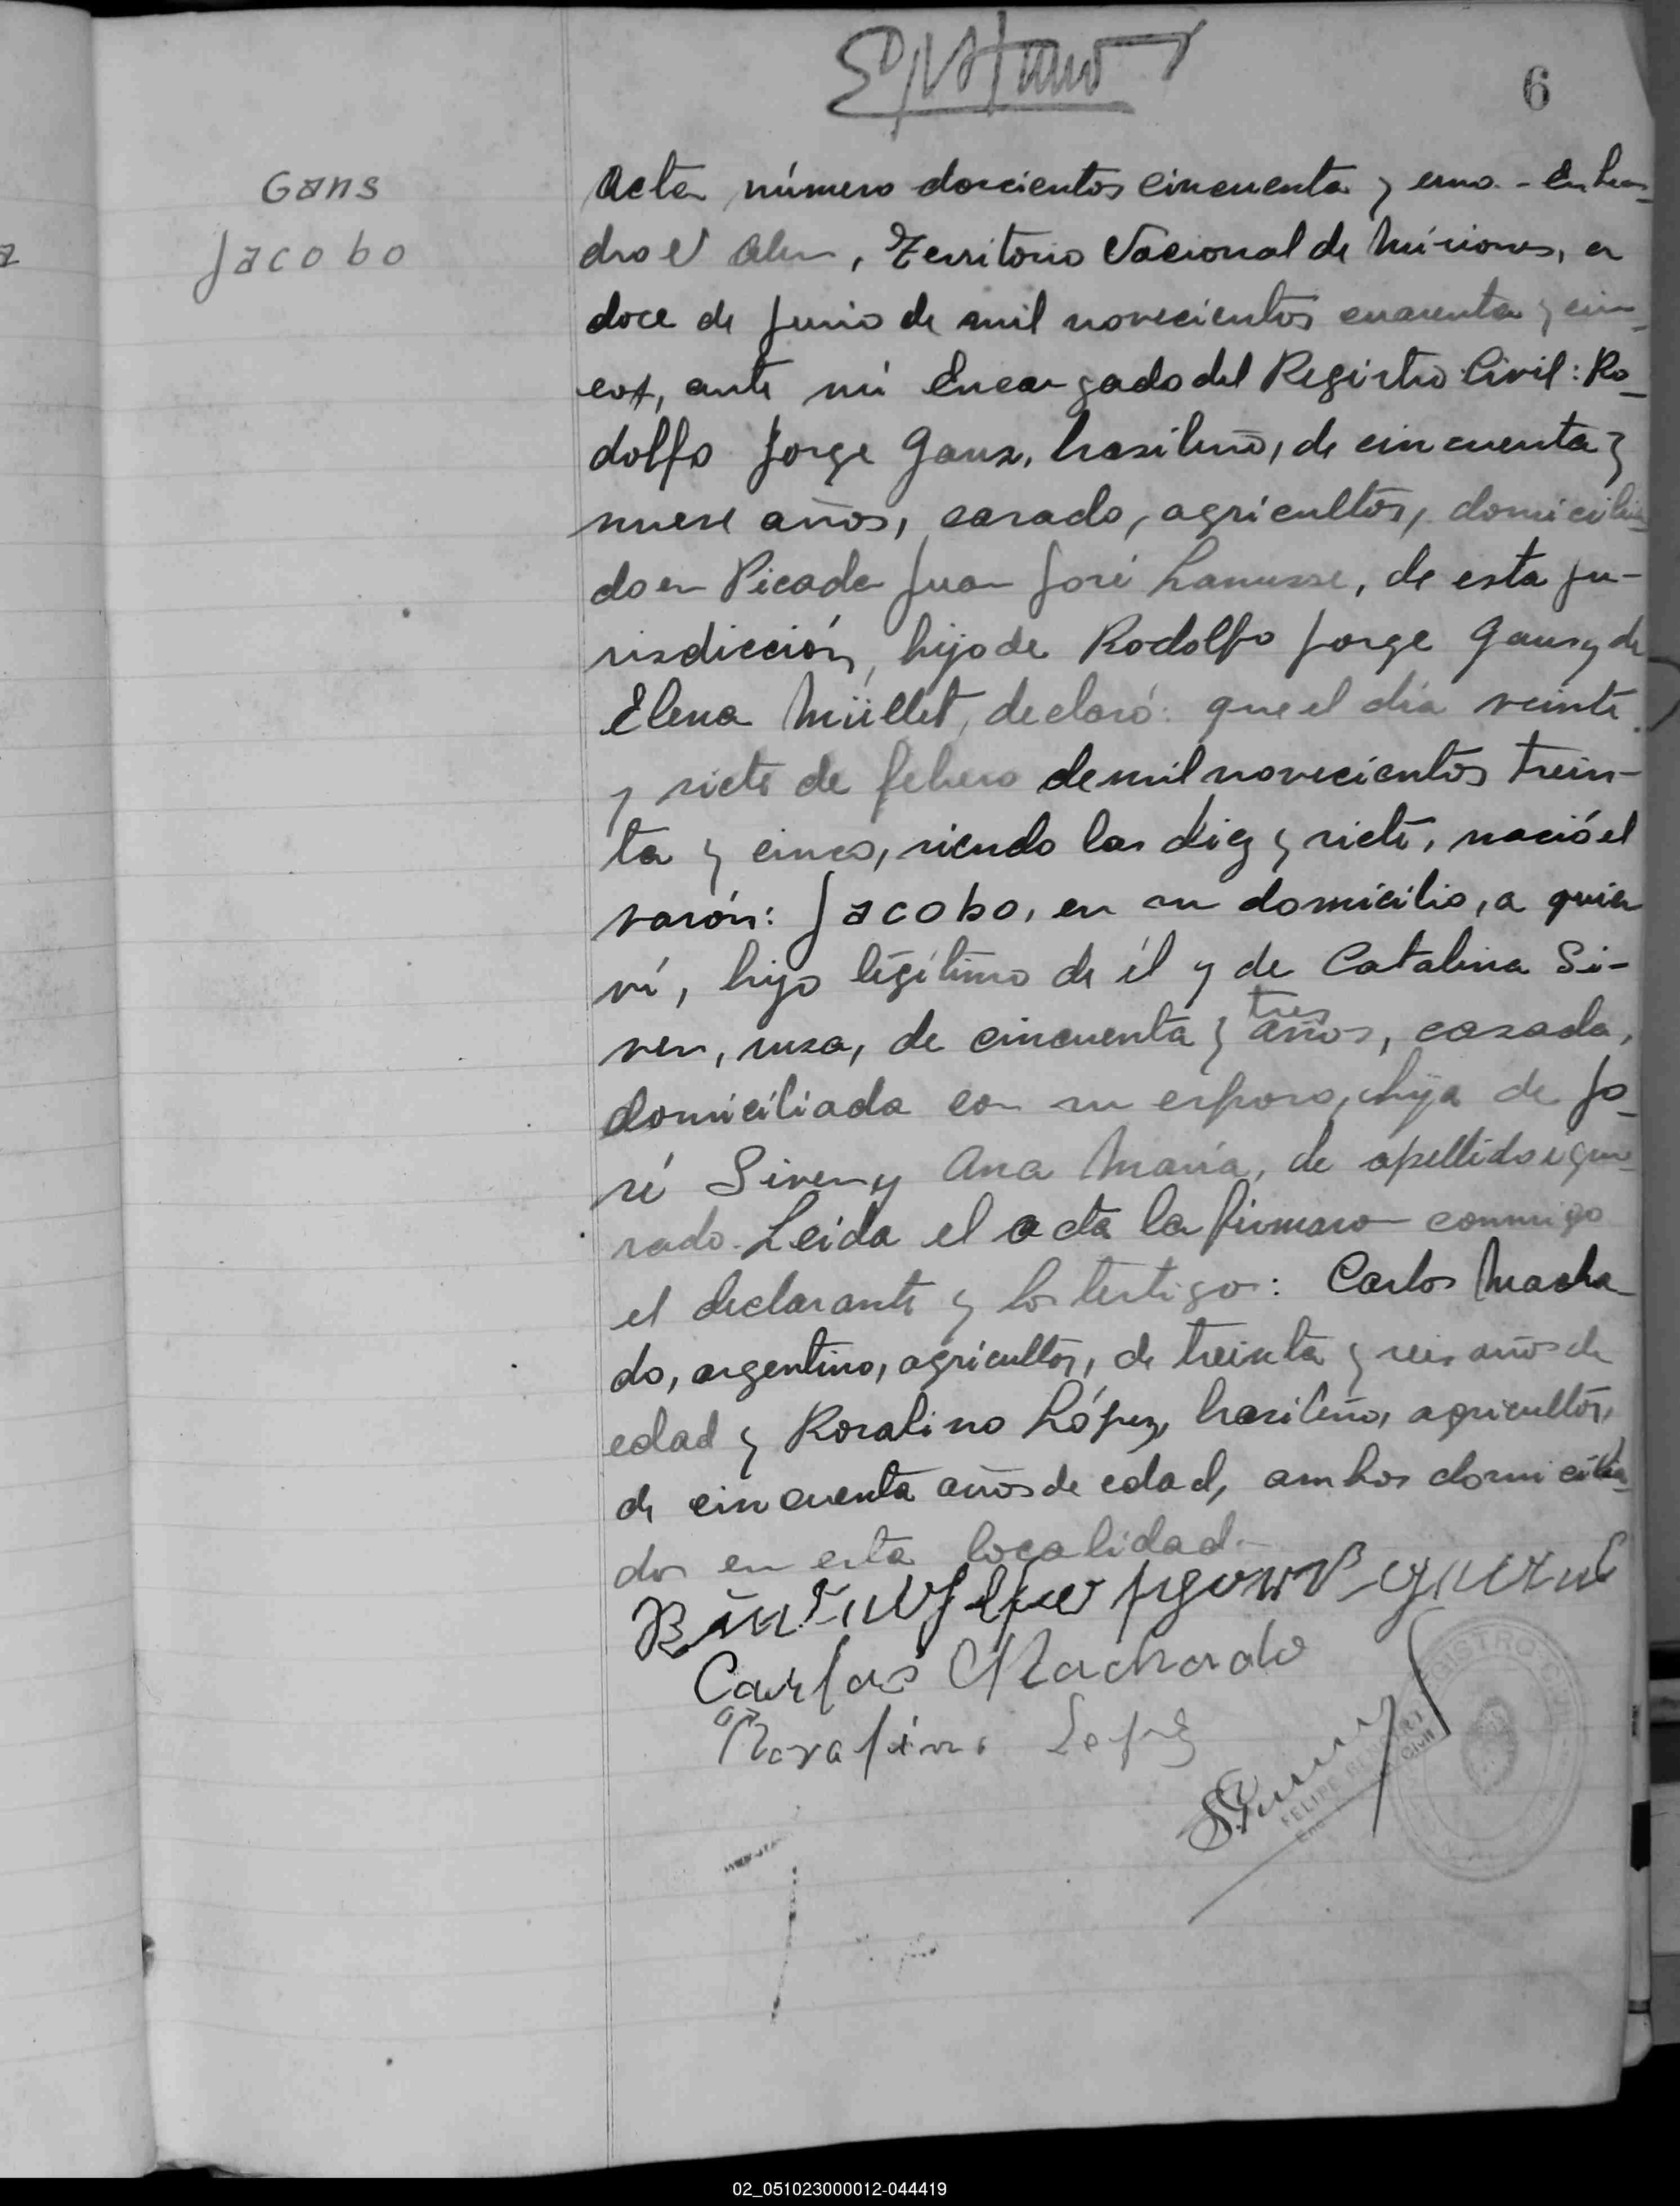 6
Gans
Jacobo
Acta número doscientos cincuenta y uno. - En Lean-
dro N Alem, Territorio Nacional de Misiones, a
doce de Junio de mil novecientos cuarenta y cin-
co, ante mi Encargado del Registro Civil: Ro-
dolfo Jorge Gans, brasileño, de cincuenta y
nueve años, casado, agricultor, domicilia-
do en Picada Juan José Lanusse, de esta ju-
risdicción, hijo de Rodolfo Jorge Gans y de
Elena Müller, declaró: que el día veinte
y siete de febrero de mil novecientos trein-
ta y cinco, siendo las diez y siete, nació el
varón: Jacobo, en su domicilio, a quien
ví, hijo legítimo de él y de Catalina Si-
ven, rusa, de cincuenta y tres años, casada,
domiciliada con su esposo, hija de Jo-
sé Siven y Ana María, de apellido igno-
rado. Leída el acta la firmaron conmigo
el declarante y los testigos: Carlos Macha-
do, argentino, agricultor, de treinta y seis años de
edad y Rosalino López, brasileño, agricultor,
de cincuenta años de edad, ambos domicilia-
dos en esta localidad.-
Carlos Machado
Rosalino Lopez
REGISTRO CIVIL
FELIPE
Civil
02_051023000012-044419